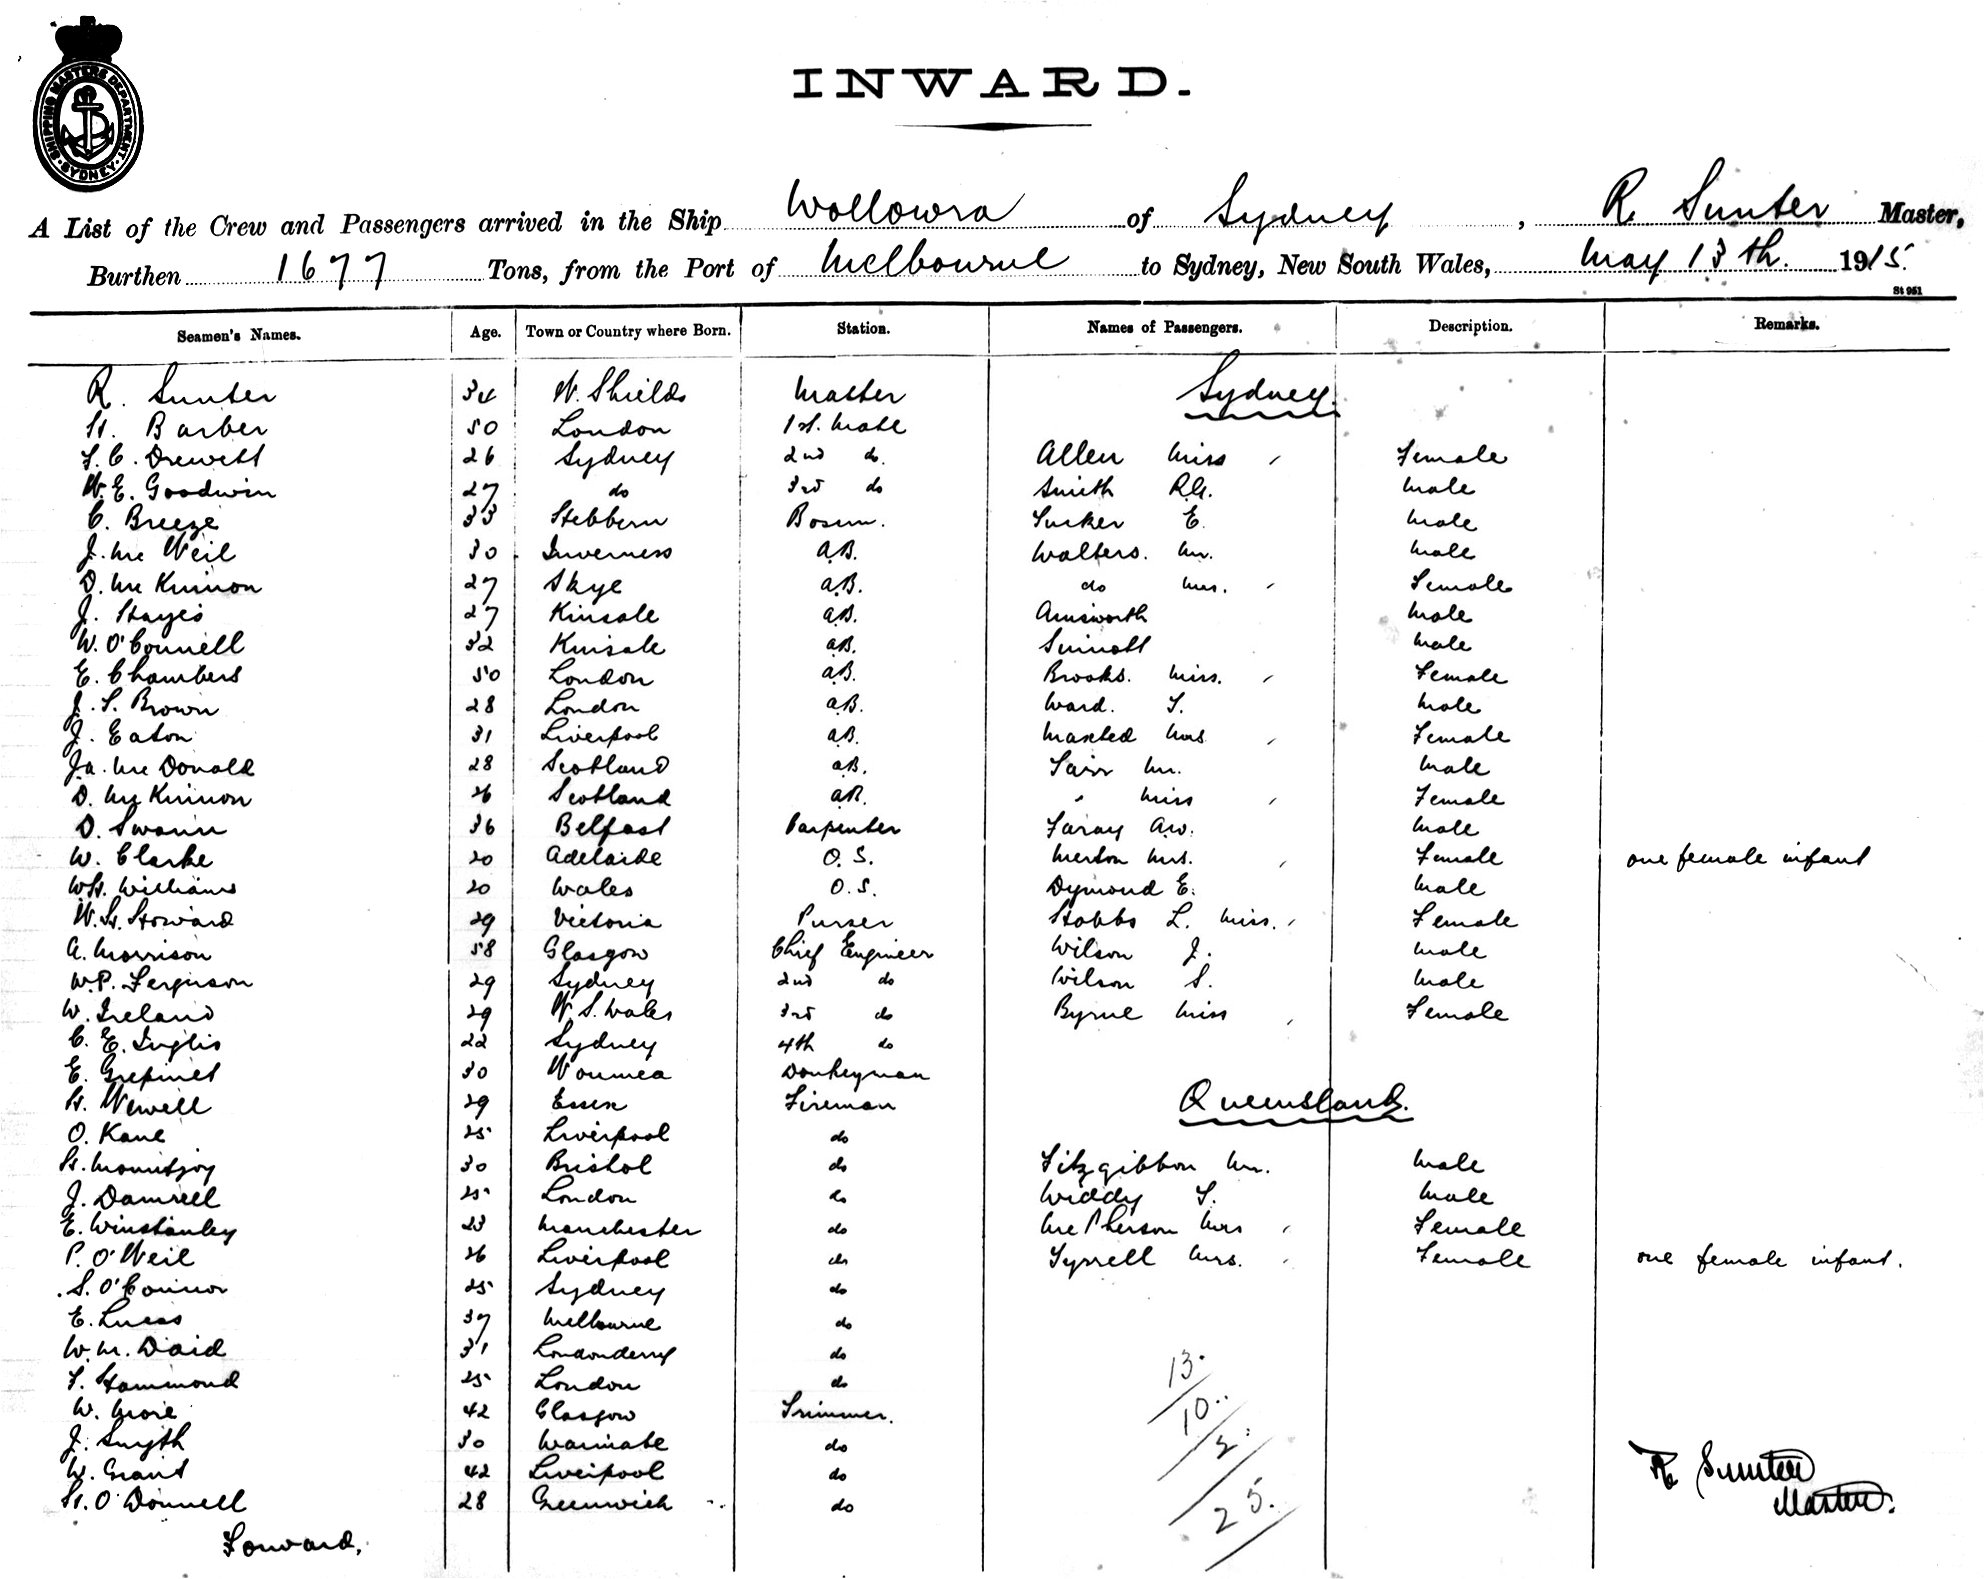 SHIPPING MASTERS DEPARTMENT · SYDNEY ·
INWARD.
A List of the Crew and Passengers arrived in the Ship Wollowra of Sydney, R. Sunter Master,
Burthen 1677 Tons, from the Port of Melbourne to Sydney, New South Wales, May 13th. 1915.
St 951
Seamen's Names. Age. Town or Country where Born. Station. Names of Passengers. Description. Remarks.
R. Sunter 34 N. Shields Master Sydney.
H. Barber 50 London 1st. Mate
F. C. Drewett 26 Sydney 2nd do. Allen Miss Female
W. E. Goodwin 27 do 3rd do Smith R.G. Male
C. Breeze 33 Bosun. Tucker E. Male
J. Mc Neil 30 Inverness A.B. Walters. Mr. Male
D. Mc Kinnon 27 Skye A.B. do Mrs. Female
J. Hayes 27 Kinsale A.B. Ainsworth Male
W. O'Connell 32 Kinsale A.B. Sinnott Male
E. Chambers 50 London A.B. Brooks. Miss. Female
J. S. Brown 28 London A.B. Ward. T. Male
J. Eaton 31 Liverpool A.B. Maxted Mrs Female
Ja. Mc Donald 28 Scotland A.B. Mr. Male
D. Mc Kinnon 26 Scotland A.B. " Miss Female
D. Swann 36 Belfast Carpenter A.W. Male
W. Clarke 20 Adelaide O. S. Merton Mrs. Female one female infant
W.H. Williams 20 Wales O. S. Dymond E. Male
N. H. Howard 29 Victoria Purser Stobbs L. Miss. Female
A. Morrison 58 Glasgow Chief Engineer Wilson J. Male
W.P. Ferguson 29 Sydney 2nd do Wilson S. Male
W. Ireland 29 N. S. Wales 3rd do Byrne Miss Female
C. E. Inglis 22 Sydney 4th do
E. 30 Noumea Donkeyman
H. Newell 29 Essex Fireman Queensland.
O. Kane 25 Liverpool do
H. Mountjoy 30 Bristol do Fitzgibbon Mr. Male
J. Damrell 25 London do Widdy T. Male
E. Winstanley 23 Manchester do Mc Pherson Mrs Female
P. O'Neil 26 Liverpool do Tyrrell Mrs. Female one female infant.
S. O'Connor 25 Sydney do
E. Lucas 37 Melbourne do
W. M. Daid 31 Londonderry do
F. Hammond 25 London do 13
W. 42 Glasgow Trimmer. 10
J. Smyth 30 do 2
W. Grant 42 Liverpool do R Sunter
H. O'Donnell 28 Greenwich do 25. Master.
Forward.